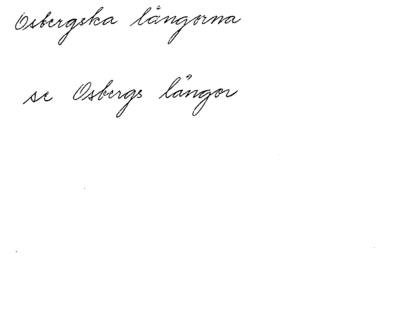 Osbergska längorna
se Osbergs längor